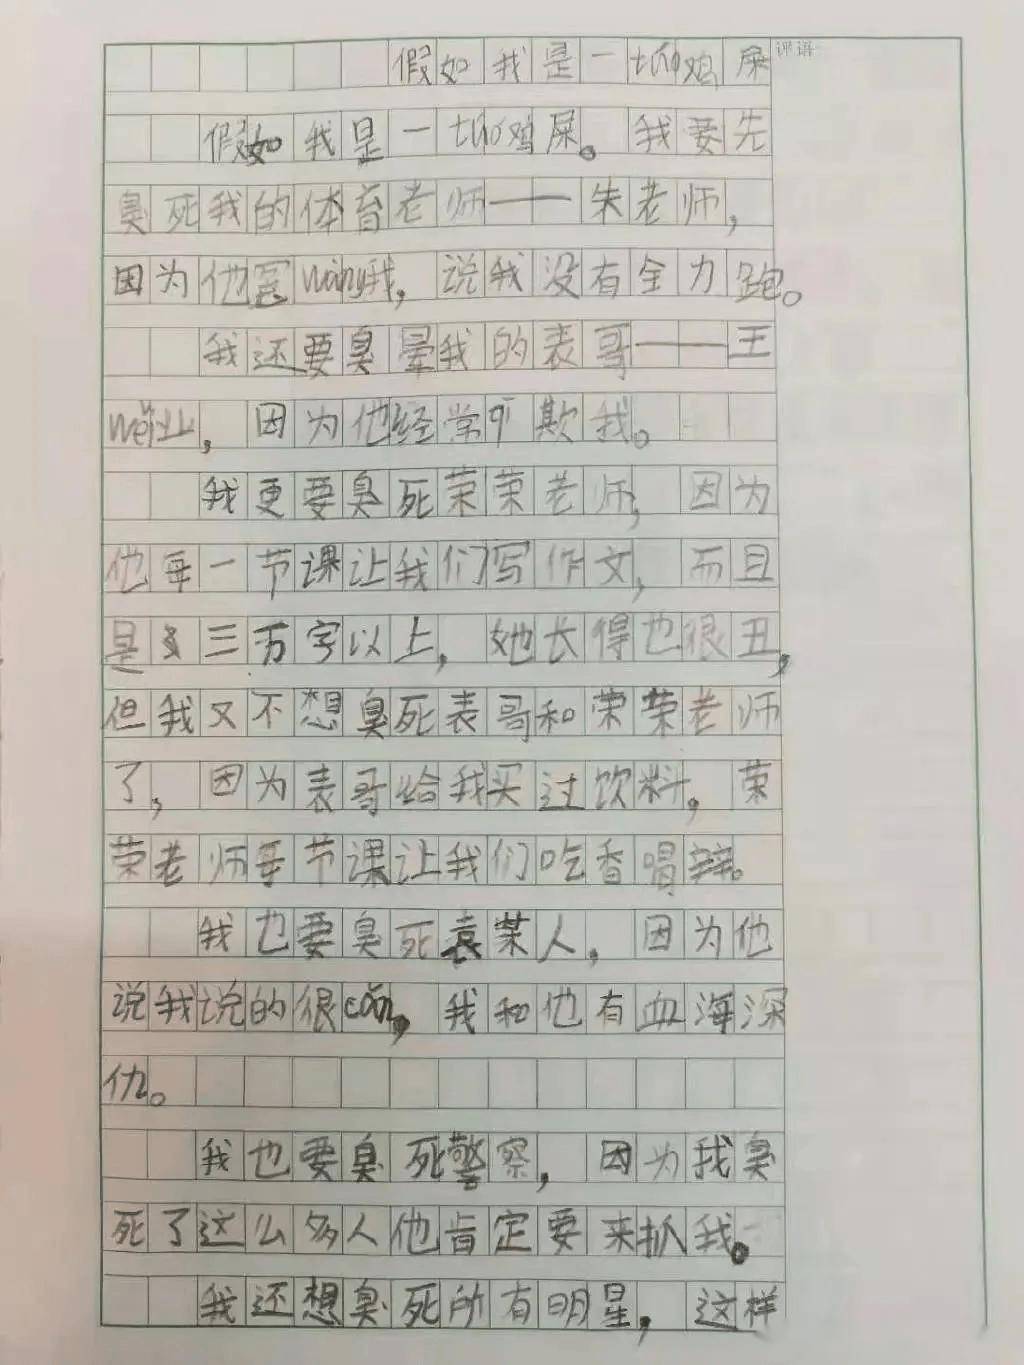 假如我是一tuó鸡屎
评语:
假如我是一tuó鸡屎。我要先
臭死我的体育老师——朱老师,
因为他冤wàng我,说我没有全力跑。
我还要臭晕我的表哥——王
wěi业,因为他经常qī欺我。
我更要臭死荣荣老师,因为
他每一节课让我们写作文,而且
是三万字以上,她长得也很丑,
但我又不想臭死表哥和荣荣老师
了,因为表哥给我买过饮料,荣
荣老师每节课让我们吃香喝辣。
我也要臭死袁某人,因为他
说我说的很cǎn,我和他有血海深
仇。
我也要臭死警察,因为我臭
死了这么多人他肯定要来抓我。
我还想臭死所有明星,这样